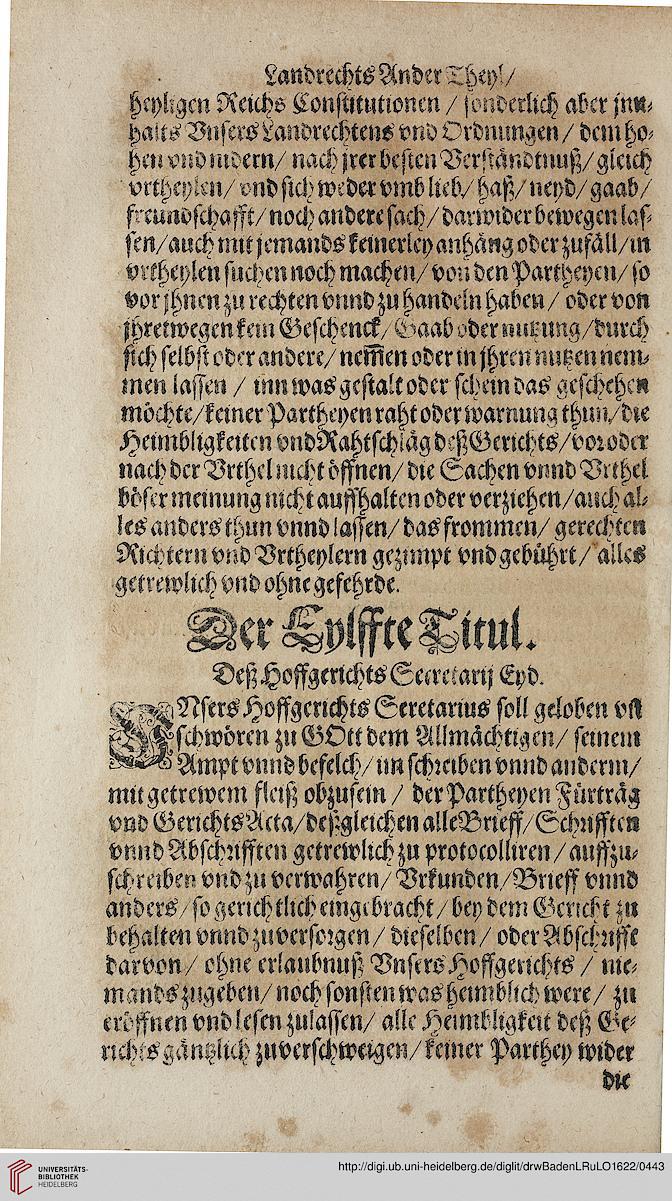 Landrechts Ander Theyl/
heyligen Reichs Constitutionen / sonderlich aber jnn-
halts Vnsers Landrechtens vnd Ordnungen / dem ho-
hen vnd nidern/ nach jrer besten Verständtnuß/ gleich
vrtheylen/ vnd sich weder vmb lieb/ haß/ neyd/ gaab/
freundschafft/ noch andere sach/ darwider bewegen las-
sen/ auch mit jemands keinerley anhäng oder zufäll/ in
vrtheylen suchen noch machen/ von den Partheyen/ so
vor jhnen zu rechten vnnd zu handeln haben / oder von
jhretwegen kein Geschenck/ Gaab oder nutzung/ durch
sich selbst oder andere/ nem̅en oder in jhren nutzen nem-
men lassen / inn was gestalt oder schein das geschehen
möchte/ keiner Partheyen raht oder warnung thun/ die
Heimbligkeiten vnd Rahtschläg deß Gerichts/ vor oder
nach der Vrthel nicht öffnen/ die Sachen vnnd Vrthel
böser meinung nicht auffhalten oder verziehen/ auch al-
les anders thun vnnd lassen/ das frommen/ gerechten
Richtern vnd Vrtheylern gezimpt vnd gebührt/ alles
getrewlich vnd ohne gefehrde.
Der Eylffte Titul.
Deß Hoffgerichts Secretarij Eyd.
VNsers Hoffgerichts Seretarius soll geloben vñ
schwören zu GOtt dem Allmächtigen/ seinem
Ampt vnnd befelch/ im schreiben vnnd anderm/
mit getrewem fleiß obzusein / der Partheyen Fürträg
vnd Gerichts Acta/ deßgleichen alle Brieff/ Schrifften
vnnd Abschrifften getrewlich zu protocolliren / auffzu-
schreiben vnd zu verwahren/ Vrkunden/ Brieff vnnd
anders/ so gerichtlich eingebracht/ bey dem Gericht zu
behalten vnnd zuversorgen / dieselben / oder Abschrifft
darvon/ ohne erlaubnuß Vnsers Hoffgerichts / nie-
mands zugeben/ noch sonsten was heimblich were/ zu
eröffnen vnd lesen zulassen/ alle Heimbligkeit deß Ge-
richts gäntzlich zuverschweigen/ keiner Parthey wider
die
UNIVERSITÄTS-
BIBLIOTHEK
HEIDELBERG
http://digi.ub.uni-heidelberg.de/diglit/drwBadenLRuLO1622/0443